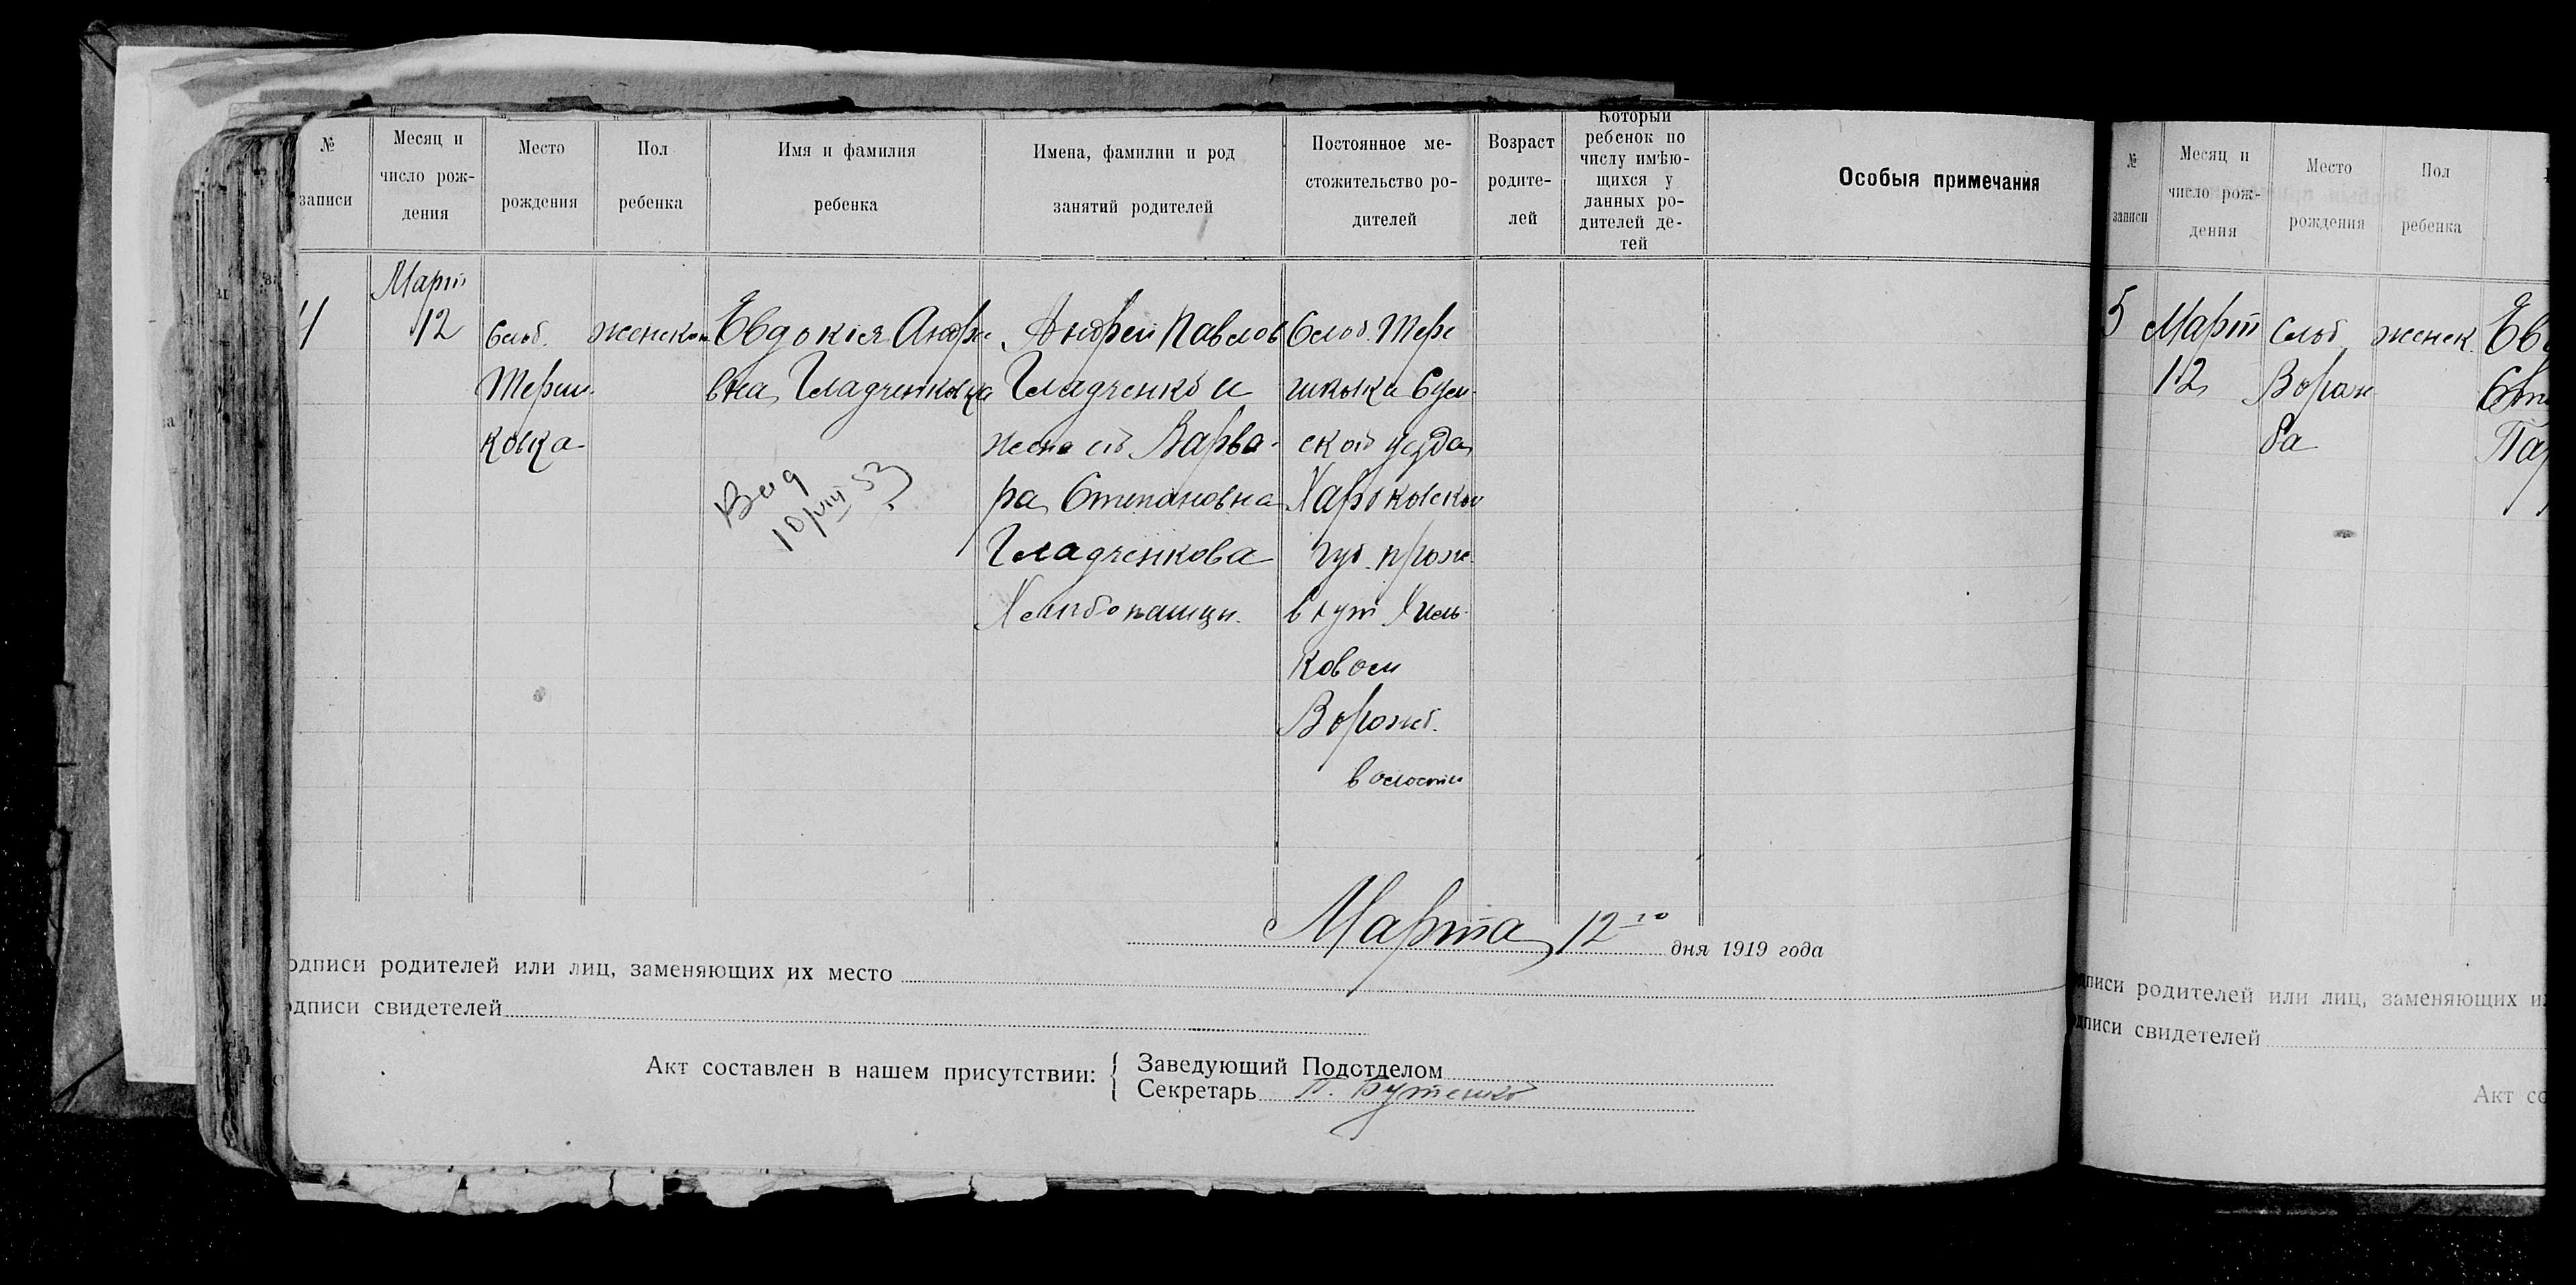 № записи
Месяц и число рождения
Место рождения
Пол ребенка
Имя и фамилия ребенка
Имена, фамилии и род занятий родителей
Постоянное местожительство родителей
Возраст родителей
Который ребенок по числу имѣющихся у данных родителей детей
Особыя примечания
4
Март
12
Слоб.
Тереш-
ковка
женскаго
Евдокія Андре
вна Гладченкова
Выд
10/VIII 53
Андрей Павлов
Гладченко и
жена его Варва-
ра Степановна
Гладченкова
Хлибопашцы.
Слоб. Тере
шковка Сум-
ской уезда
Харьковской
губ. прож.
в хут Хиль-
ковом
Ворожб.
волости
Марта 12го дня 1919 года
одписи родителей или лиц, заменяющих их место
одписи свидетелей
Акт составлен в нашем присутствии:
Заведующий Подотделом
Секретарь П. Бутенко
№ записи
Месяц и число рождения
Место рождения
Пол ребенка
5
Март
12
Слоб
Ворож
ба
женск.
Ев
Па
дписи родителей или лиц, заменяющих и
дписи свидетелей
Акт со